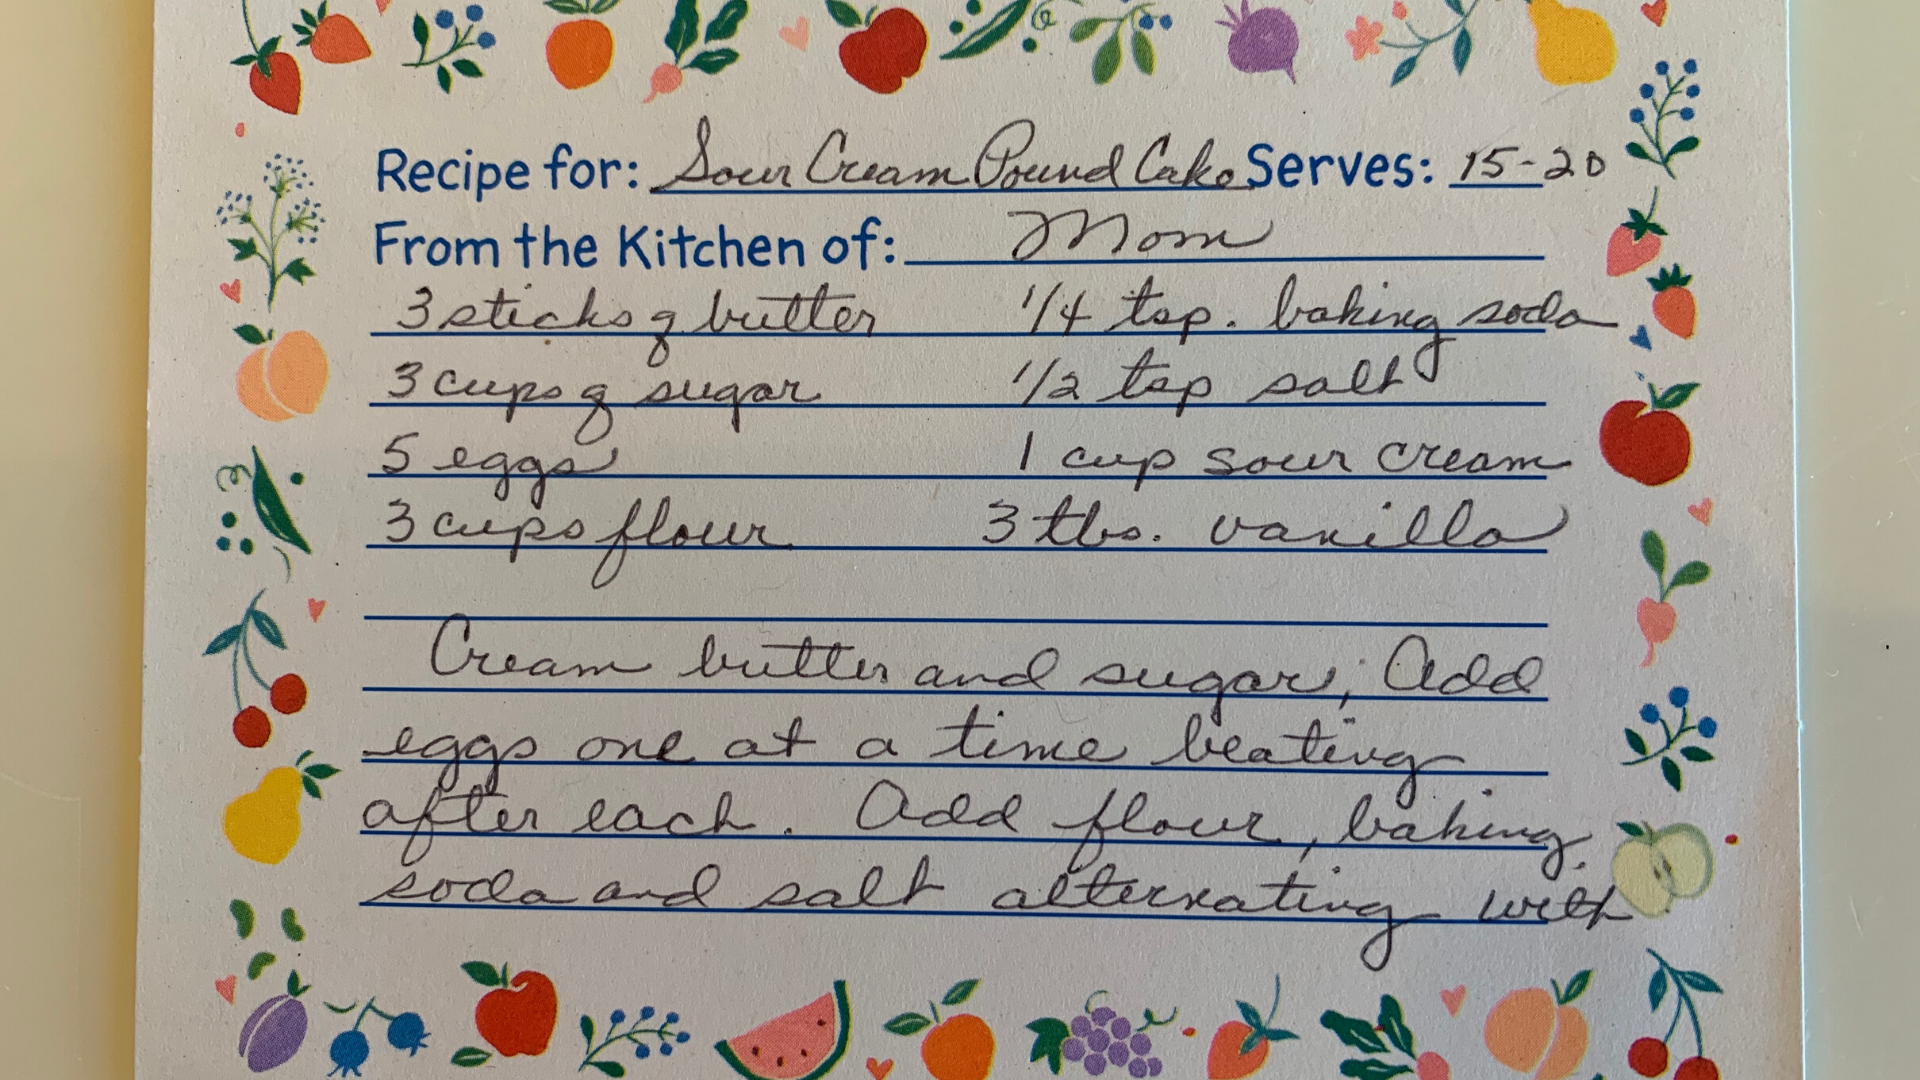 Recipe for: Sour Cream Pound Cake Serves: 15-20
From the Kitchen of: Mom
3 sticks of butter 1/4 tsp. baking soda
3 cups of sugar 1/2 tsp salt
5 eggs 1 cup sour cream
3 cups flour 3 tbs. vanilla
Cream butter and sugar; Add
eggs one at a time beating
after each. Add flour, baking
soda and salt alternating with